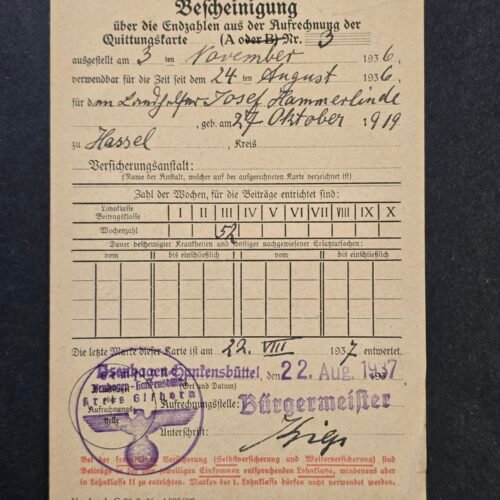 Bescheinigung
über die Endzahlen aus der Aufrechnung der
Quittungskarte (A oder B) Nr. 3
ausgestellt am 3 ten November 1936,
verwendbar für die Zeit seit dem 24 ten August 1936,
für den Landhelfer Josef Hammerlinde
, geb. am 27 Oktober 1919
zu Hassel, Kreis
Versicherungsanstalt:
(Name der Anstalt, welcher auf der aufgerechneten Karte verzeichnet ist)
Zahl der Wochen, für die Beiträge entrichtet sind:
Lohnklasse
Beitragsklasse I II III IV V VI VII VIII IX X
Wochenzahl 52
Dauer bescheinigter Krankheiten und sonstiger nachgewiesener Ersatztatsachen:
vom bis einschließlich vom bis einschließlich
Die letzte Marke dieser Karte ist am 22. VIII 1937 entwertet.
Isenhagen-Hankensbüttel, den 22. Aug. 1937
(Ort und Datum)
Isenhagen-Hankensbüttel
Kreis Gifhorn
der Aufrechnungsstelle
Aufrechnungsstelle: Bürgermeister
Unterschrift:
Bei der freiwilligen Versicherung (Selbstversicherung und Weiterversicherung) sind
Beiträge in der dem jeweiligen Einkommen entsprechenden Lohnklasse, mindestens aber
in Lohnklasse II zu entrichten. Marken der 1. Lohnklasse dürfen nicht verwendet werden.